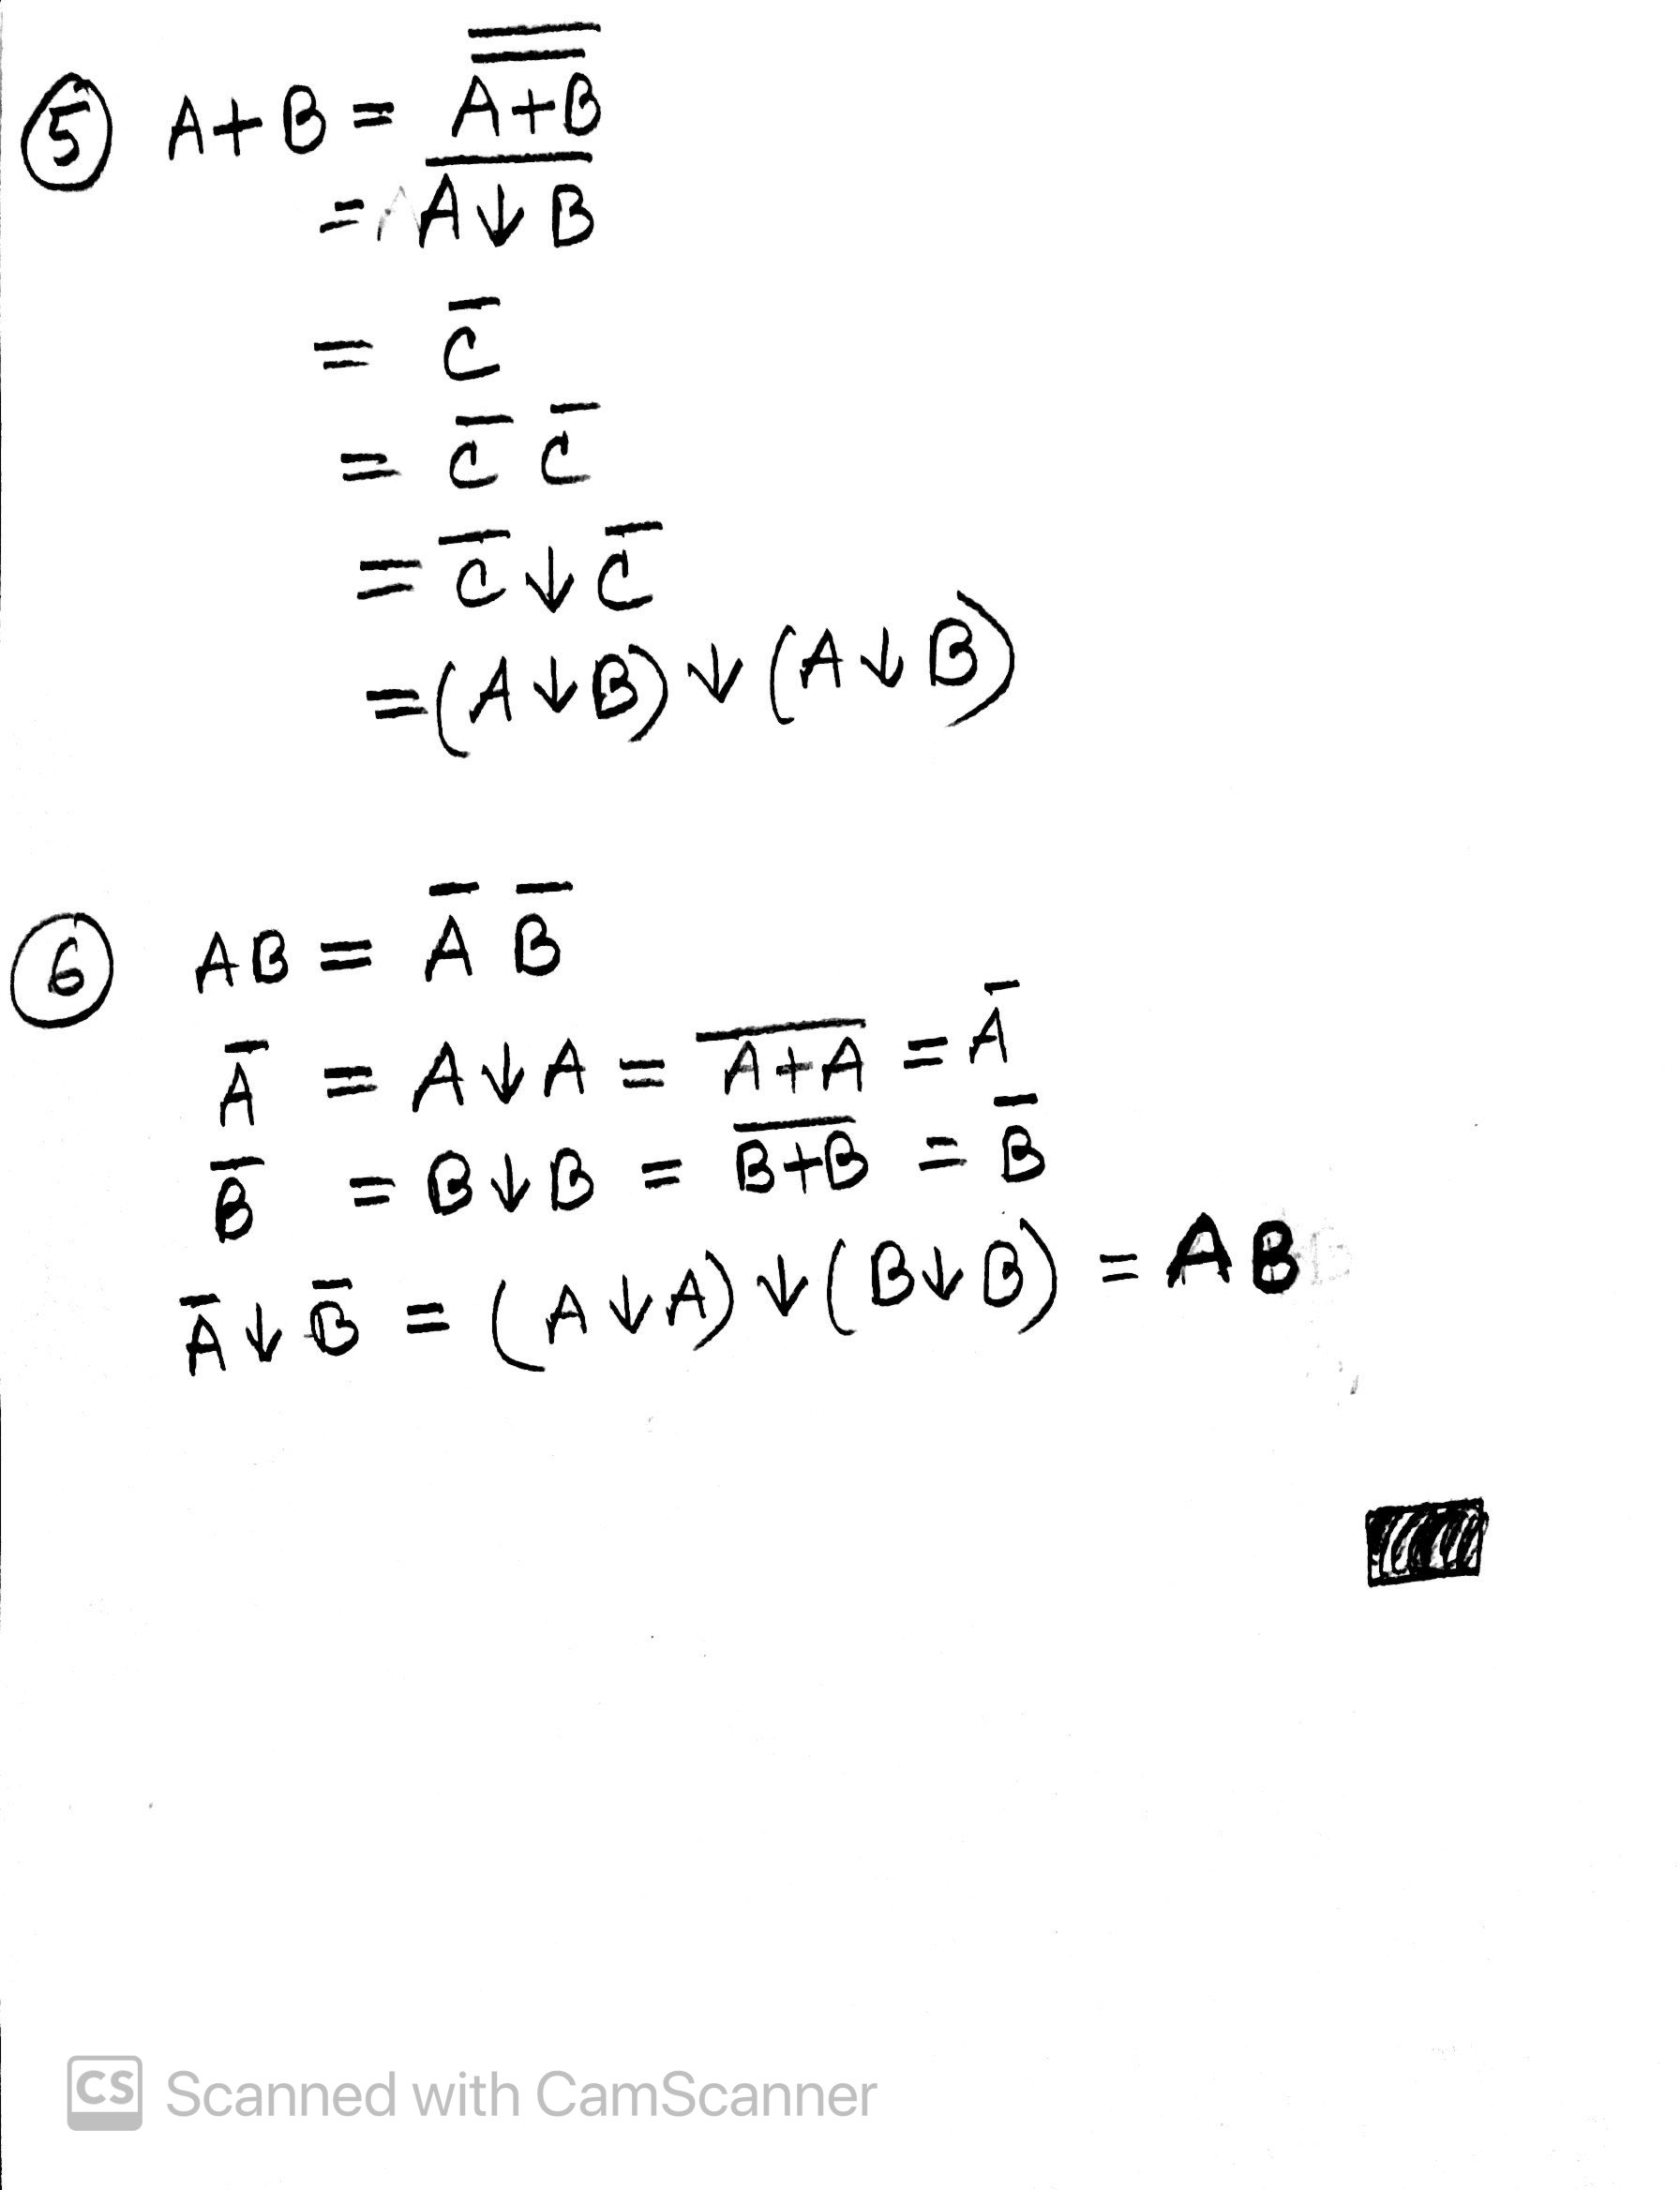 ⑤ A+B = A̿+̿B̿
= A̅↓̅B̅
= C̅
= C̅ C̅
= C̅↓C̅
=(A↓B)↓(A↓B)
⑥ AB = A̅ B̅
A̅ = A↓A = A̅+̅A̅ = A̅
B̅ = B↓B = B̅+̅B̅ = B̅
A̅↓B̅ = (A↓A)↓(B↓B) = AB
CS Scanned with CamScanner